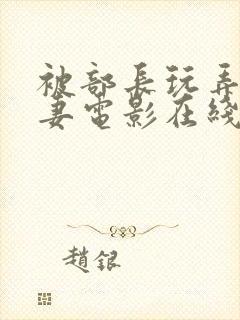 被部長玩弄
妻電影在綫
趙銀